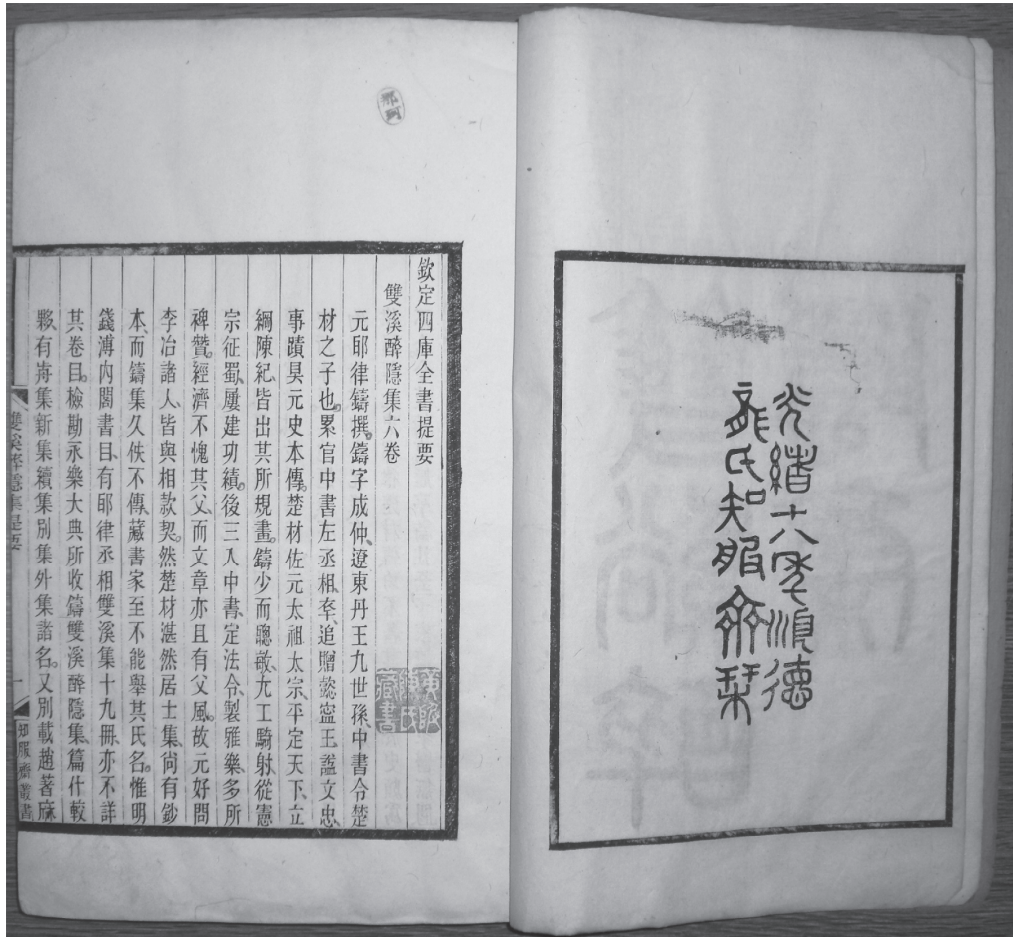 光緒十八年順德
龍氏知服齋栞
欽定四庫全書提要
雙溪醉隱集六卷
元耶律鑄撰。鑄字成仲、遼東丹王九世孫、中書令楚
材之子也。累官中書左丞相、卒、追贈懿寧王、諡文忠、
事蹟具元史本傳。楚材佐元太祖太宗、平定天下、立
綱陳紀、皆出其所規畫。鑄少而聰敏、尤工騎射、從憲
宗征蜀、屢建功績。後三入中書、定法令、製雅樂、多所
裨贊。經濟不愧其父、而文章亦且有父風。故元好問
李冶諸人、皆與相款契。然楚材湛然居士集、尙有鈔
本、而鑄集久佚不傳、藏書家至不能舉其氏名。惟明
錢溥內閣書目、有耶律丞相雙溪集十九冊、亦不詳
其卷目。檢勘永樂大典所收鑄雙溪醉隱集、篇什較
夥、有前集新集續集別集外集諸名。又別載趙著麻
雙溪醉隱集提要
一
知服齋叢書